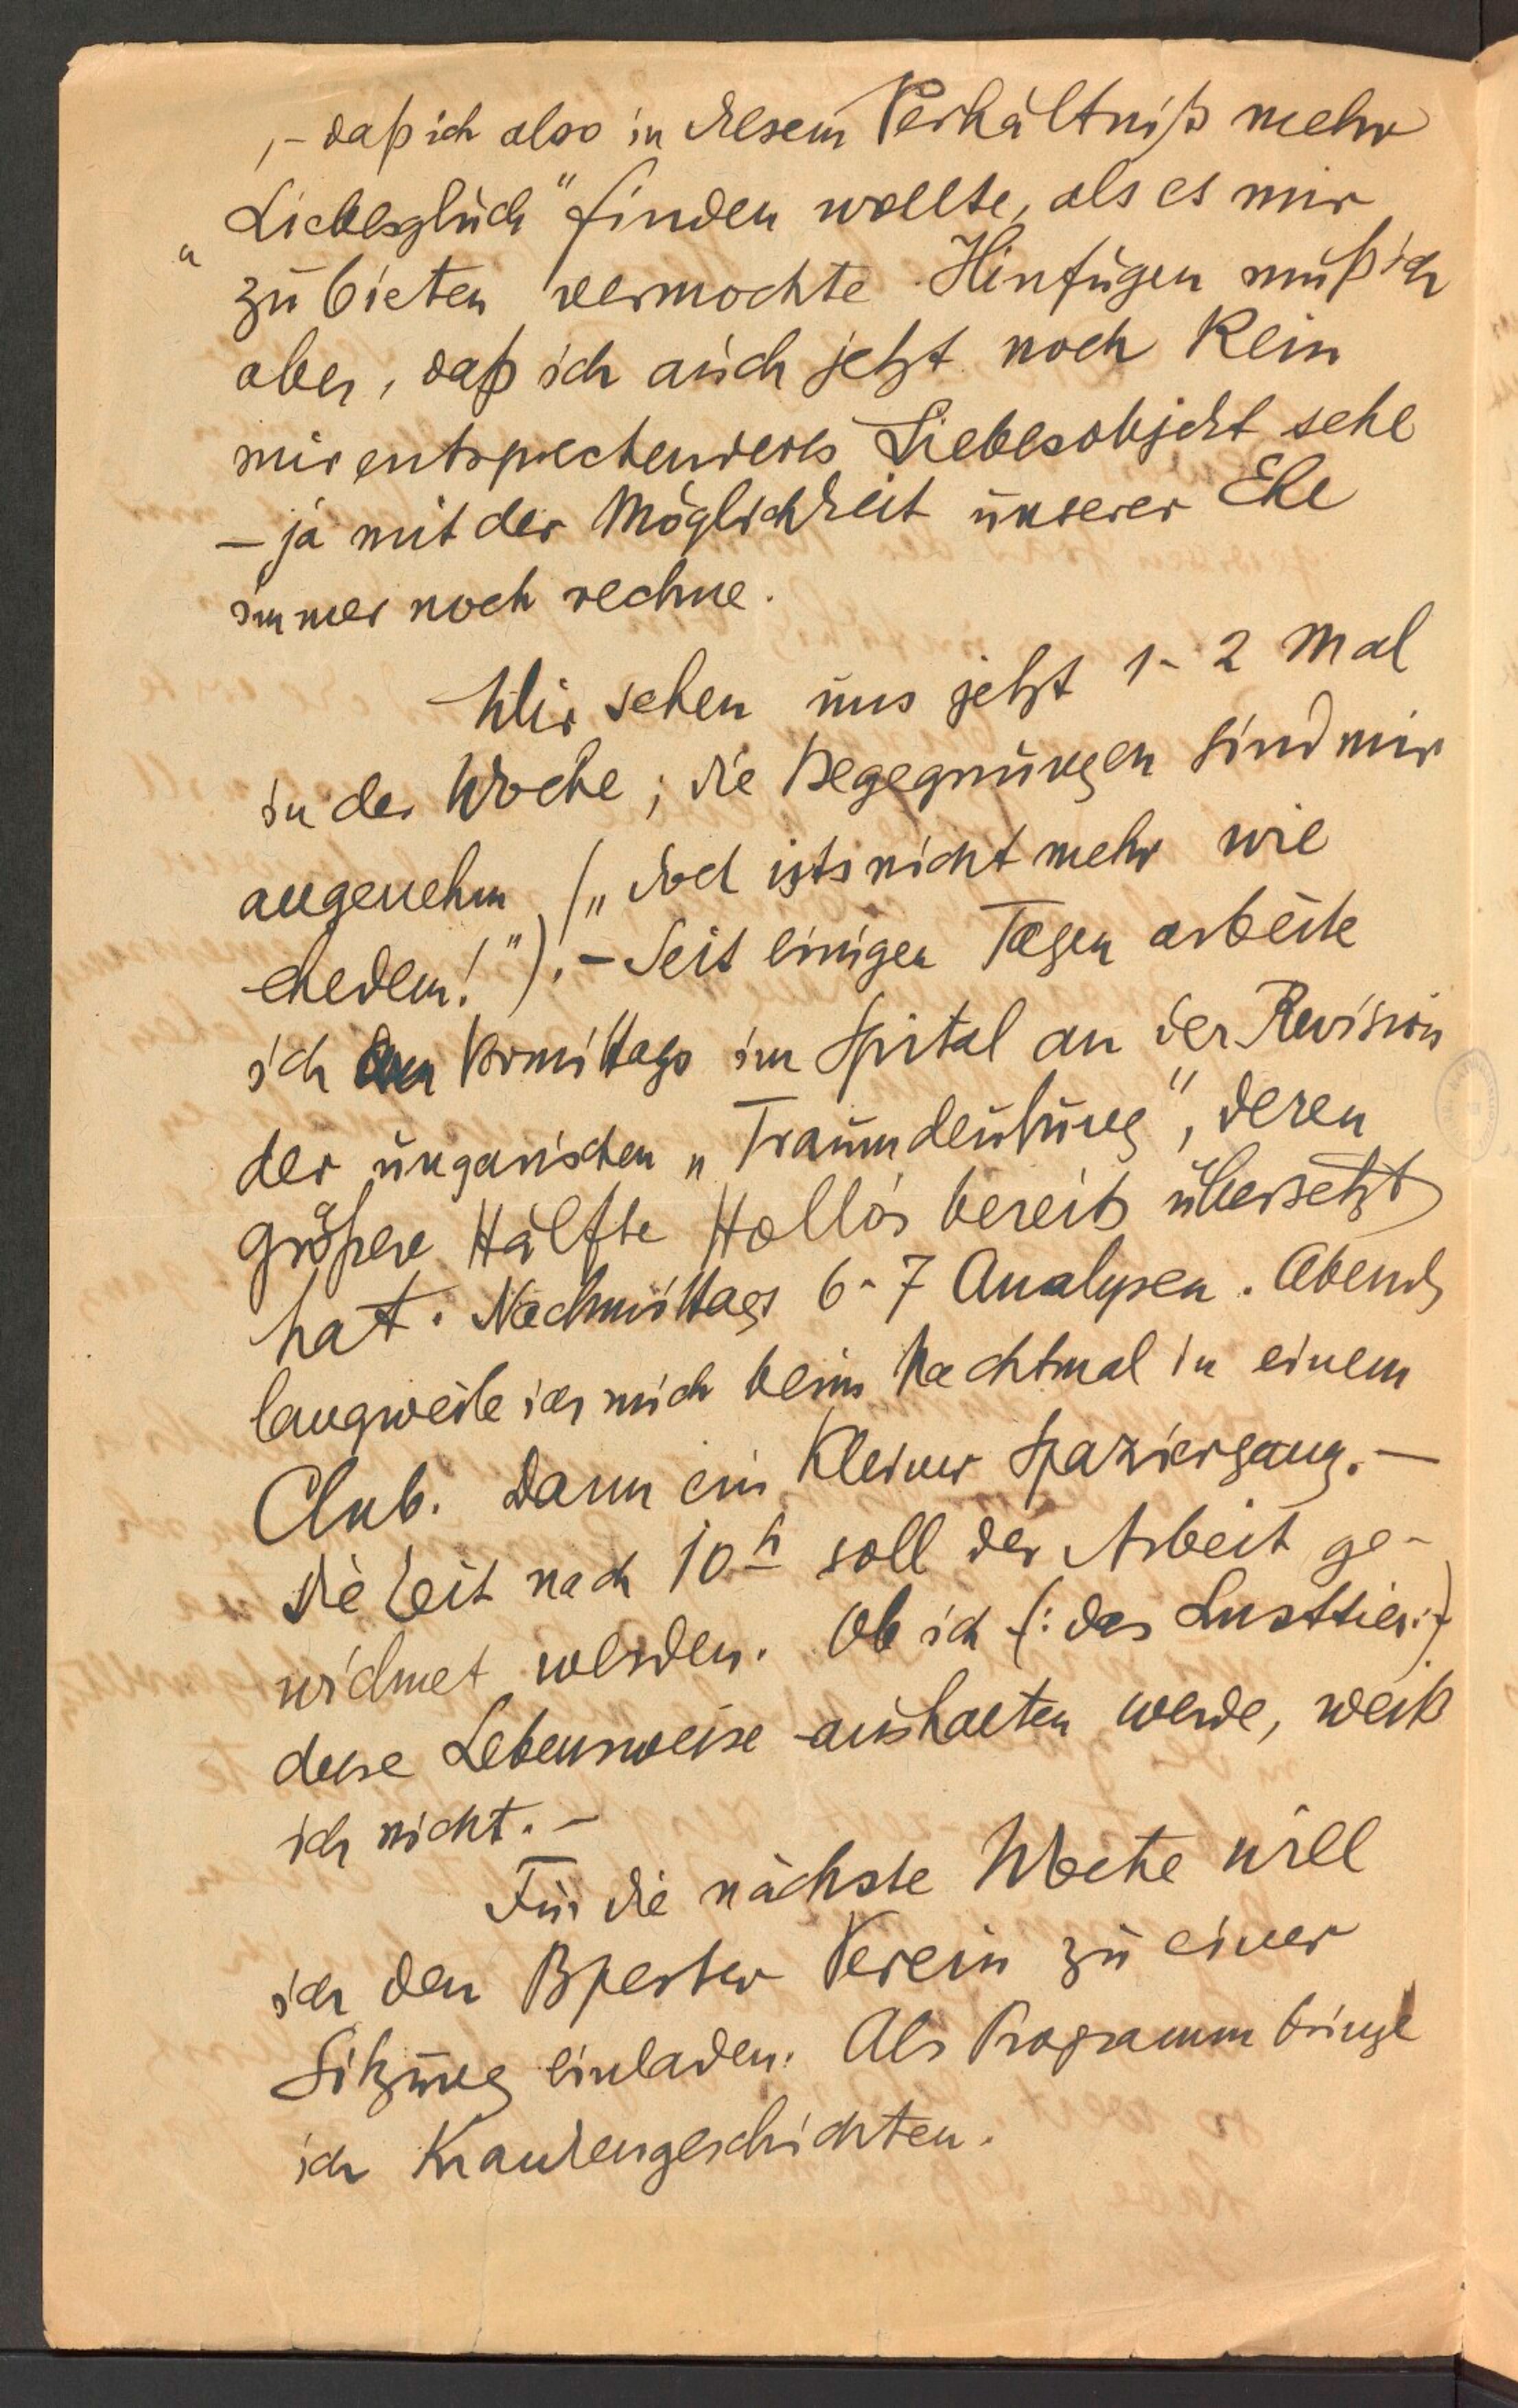 ,– daß ich also in diesem Verhältniß mehr
„Liebesglück“ finden wollte, als es mir
zu bieten vermochte. Hinfügen muß ich
aber, daß ich auch jetzt noch kein
mir entsprechenderes Liebesobjekt sehe
– ja mit der Möglichkeit unserer Ehe
immer noch rechne.
Wir sehen uns jetzt 1-2 Mal
in der Woche; die Begegnungen sind mir
angenehm („doch ists nicht mehr wie
ehedem!“). – Seit einigen Tagen arbeite
ich Vormittags im Spital an der Revision
der ungarischen „Traumdeutung“, deren
größere Hälfte Hollós bereits übersetzt
hat. Nachmittags 6-7 Analysen. Abends
langweile ich mich beim Nachtmal in einem
Club. Dann ein kleiner Spaziergang. –
Die Zeit nach 10h soll der Arbeit ge-
widmet werden. Ob ich (: das Lusttier :)
diese Lebensweise aushalten werde, weiß
ich nicht. –
Für die nächste Woche will
ich den Bpester Verein zu einer
Sitzung einladen. Als Programm bringe
ich Krankengeschichten.